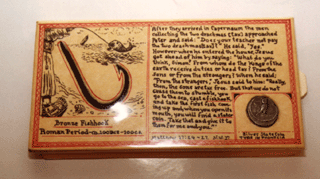 After they arrived in Capernaum the men
collecting the two drachmas [tax] approached
Peter and said: "Does your teacher not pay
the two drachmas [tax]?" He said, "Yes."
However when he entered the house, Jesus
got ahead of him by saying: "What do you
think, Simon? From whom do the kings of the
earth receive duties or head tax? From their
sons or from the strangers? When he said:
"From the strangers", Jesus said to him: "Really,
then, the sons are tax free. But that we do not
cause them to stumble, you
go to the sea, cast a fishhook,
and take the first fish com-
ing up and, when you open its
mouth, you will find a stater
coin. Take that and give it to
them for me and you."
Bronze Fishhook
Roman Period